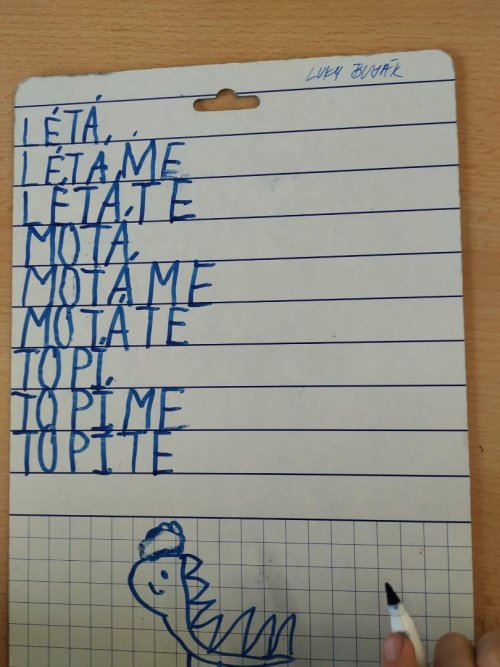 LUKY
LÉTÁ,
LÉTÁME
LÉTÁTE
MOTÁ,
MOTÁME
MOTÁTE
TOPÍ,
TOPÍME
TOPÍTE